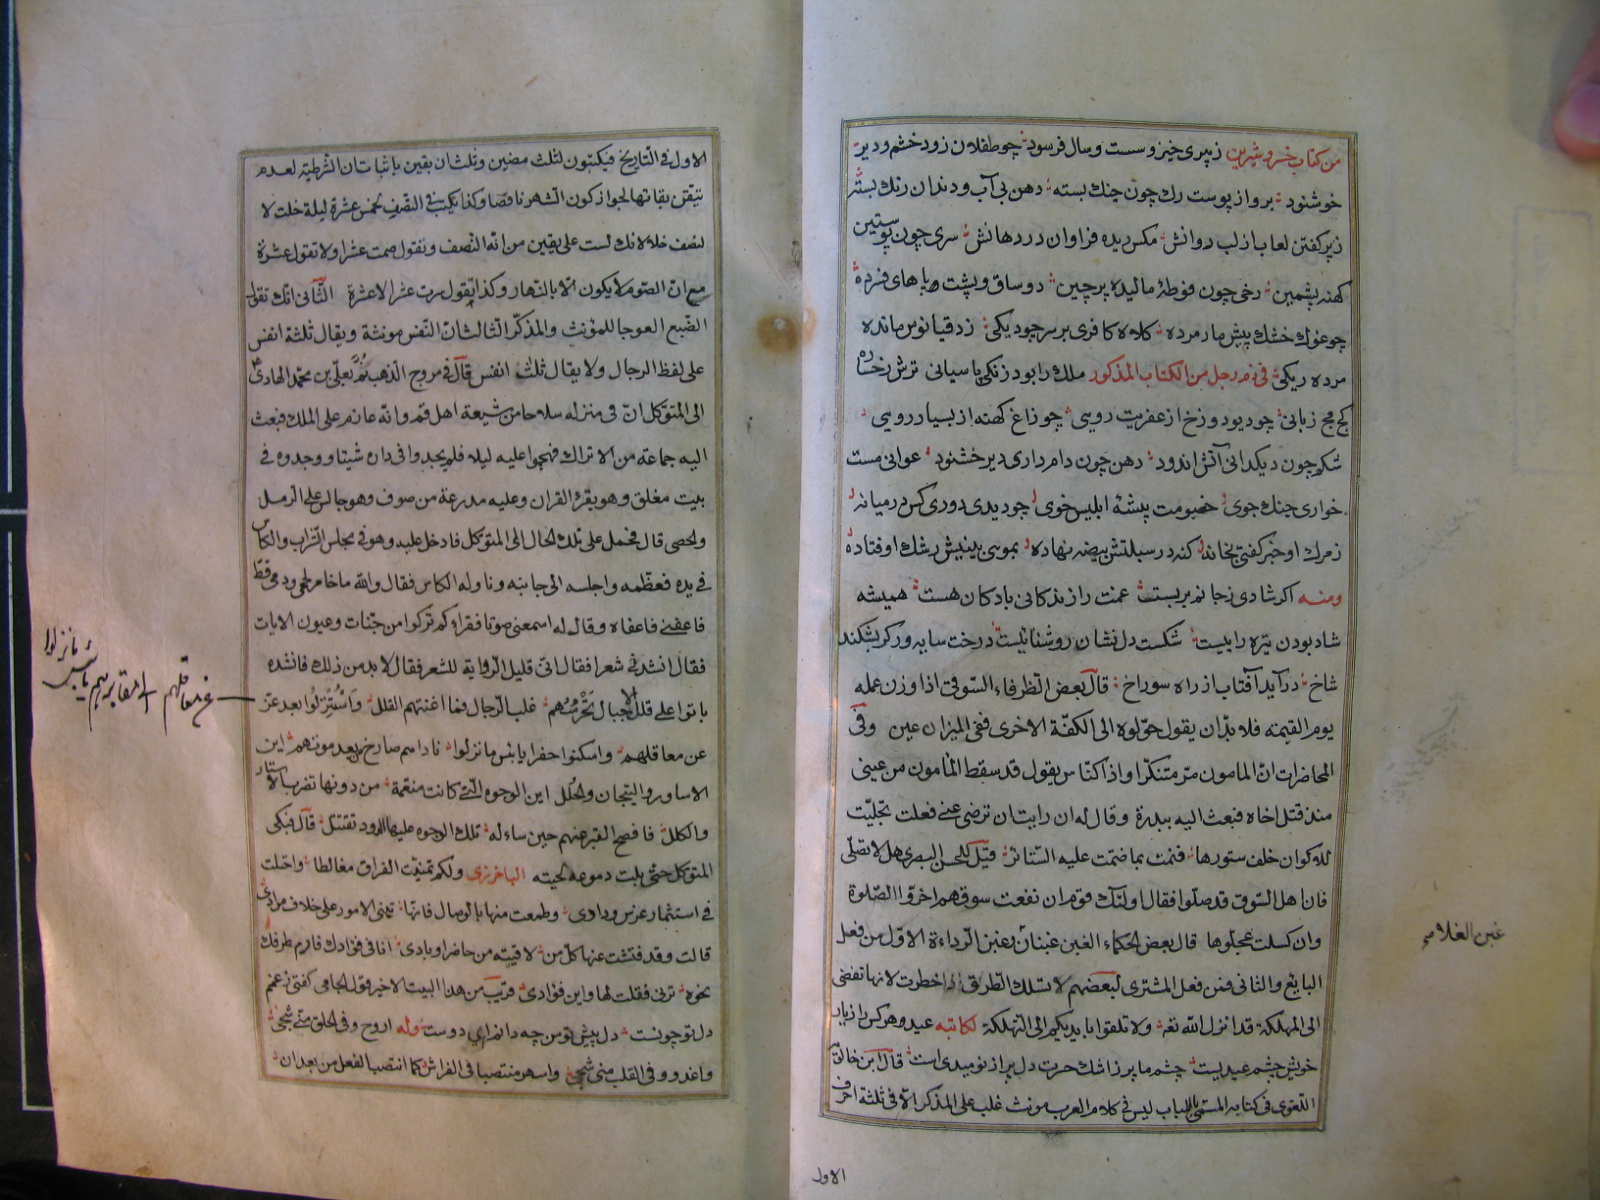 من كتاب خسرو شيرين ز پیری خیز و سست و سال فرسود چو طفلان زود خشم و دیر
خوشنود برو از پوست رك چون چنك بسته دهن بی آب و دندان رنك بسته
زیر كفتن لعاب از لب روانش مكس دیده فراوان در دهانش سری چون پوستین
كهنه پشمین رخی چون فوطهٔ مالیده پرچین دو ساق و پشت و پاهای فسرده
چو غوك خشك پیش مار مرده كلاه كافری بر سر چو دیكی ز دقیانوس مانده
مرده ریكی فی ذم رجل من الكتاب المذكور ملك را بود زنكی پاسبانی ترش رخساره
كج مج زبانی چو دیو دوزخ از عفریت رویی چو زاغ كهنه از بسیار رویی
شكم چون دیكدانی آتش اندود دهن چون دامداری دیر خشنود عوانی مست
خواری جنك جوی خصومت پیشهٔ ابلیس خوی چو دیدی دوری كس در میانه
ز مرك او خبر كفتی بخانه كنه در سبلتش بیضه نهاده بموی بینیش رشك اوفتاده
ومنه اكر شادی ز جانم بر بست عمت راز ندكانی باد كان هست همیشه
شاد بودن تیره راییست شكست دل نشان روشناییست درخت سایه ور كر بشكند
شاخ درآید آفتاب از راه سوراخ قال بعض الظرفاء السوقی اذا وزن عمله
یوم القیمة فلا بد ان یقول حولوه الی الكفة الاخری ففی المیزان عین وفی
المحاضرات ان المامون مر متنكرا واذا كناس یقول قد سقط المأمون من عینی
منذ قتل اخاه فبعث الیه ببدرة وقال له ان رایت ان ترضی عنی فعلت تجلیت
للاكوان خلف ستورها فنمت بما ضمت علیه الستائر قیل للحسن البصری هل لا تصلی
فان اهل السوق قد صلوا فقال اولئك قوم ان نفعت سوقهم اخروا الصلوة
وان كسلت عجلوها قال بعض الحكماء الغبن غبنان غبن الرداءة الاول من فعل
البایع والثانی من فعل المشتری لبعضهم لا تسلك الطریق اذا خطرت لانها تفضی
الی المهلكة قد انزل الله تعه ولا تلقوا بایدیكم الی التهلكة لكاتبه عید و هر كس را ز یار
خویش چشم عیدیست چشم ما پر ز اشك حسرت دل پر از نومیدی است قال ابن خالویه
اللغوی فی كتابه المسمی باللباب لیس فی كلام العرب مونث غلب علی المذكر الا فی ثلثة احرف
الاول
غبن الغلام
الاول فی التاریخ فیكتبون لثلث مضین وثلث ان بقین باثبات ان الشرطیة لعدم
تیقن بقائها لجواز كون الشهر ناقصا وكذا یكتب فی النصف لخمس عشرة لیلة خلت لا
لنصف خلا لانك لست علی یقین من انه النصف وتقول صمت عشرا ولا تقول عشرة
مع ان الصوم لا یكون الا بالنهار وكذا یقول سرت عشرا لا عشرة الثانی انك تقول
الضبع العرجا للمؤنث والمذكر الثالث ان النفس مونثة ویقال ثلثة انفس
علی لفظ الرجال ولا یقال ثلث انفس قال فی مروج الذهب نُمَّ بعلی بن محمد الهادی ع
الی المتوكل ان فی منزله سلاحا من شیعة اهل قم وانه عازم علی الملك فبعث
الیه جماعة من الاتراك فهجموا علیه لیلا فلم یجدوا فی داره شیئا ووجدوه فی
بیت مغلق وهو یقرء القران وعلیه مدرعة من صوف وهو جالس علی الرمل
والحصی قال فحمل علی تلك الحال الی المتوكل فادخل علیه وهو فی مجلس الشراب والكاس
فی یده فعظمه واجلسه الی جانبه وناوله الكاس فقال والله ما خامر لحمی ودمی قط
فاعفنی فاعفاه وقال له اسمعنی صوتا فقراء كم تركوا من جنات وعیون الایات
فقال انشدنی شعرا فقال انی قلیل الروایة للشعر فقال لا بد من ذلك فانشده
باتوا علی قلل الاجبال تحرسهم غلب الرجال فما اغنتهم القلل واستنزلوا بعد عز
عن معاقلهم واسكنوا حفرا یا بئس ما نزلوا ناداهم صارخ بعد موتهم این
الاساور والتیجان والحلل این الوجوه التی كانت منعمة من دونها تضرب الاستار
والكلل فافصح القبر عنهم حین ساءله تلك الوجوه علیها الدود تقتتل قال فبكی
المتوكل حتی بلت دموعه لحیته الباخرزی ولكم تمنیت الفراق مغالطا واحتلت
فی استثمار غرس ودادی وطمعت منها بالوصال فانها تبنی الامور علی خلاف مرادی
قالت وقد فتشت عنها كل من لاقیته من حاضر او بادی انا فی فؤادك فارم طرفك
نحوه ترنی فقلت لها واین فؤادی وقریب من هذا البیت الاخیر قول الجامی كفتی ز غمم
دل تو چونست دل پیش تو من چه دانم ای دوست وله اروح وفی الحلق منی شجی
واغدو وفی القلب منی شجی واسهر منتصبا فی الفراش كما انتصب الفعل من بعد ان
عن معاقلهم الی مقابرهم یا بئس ما نزلوا